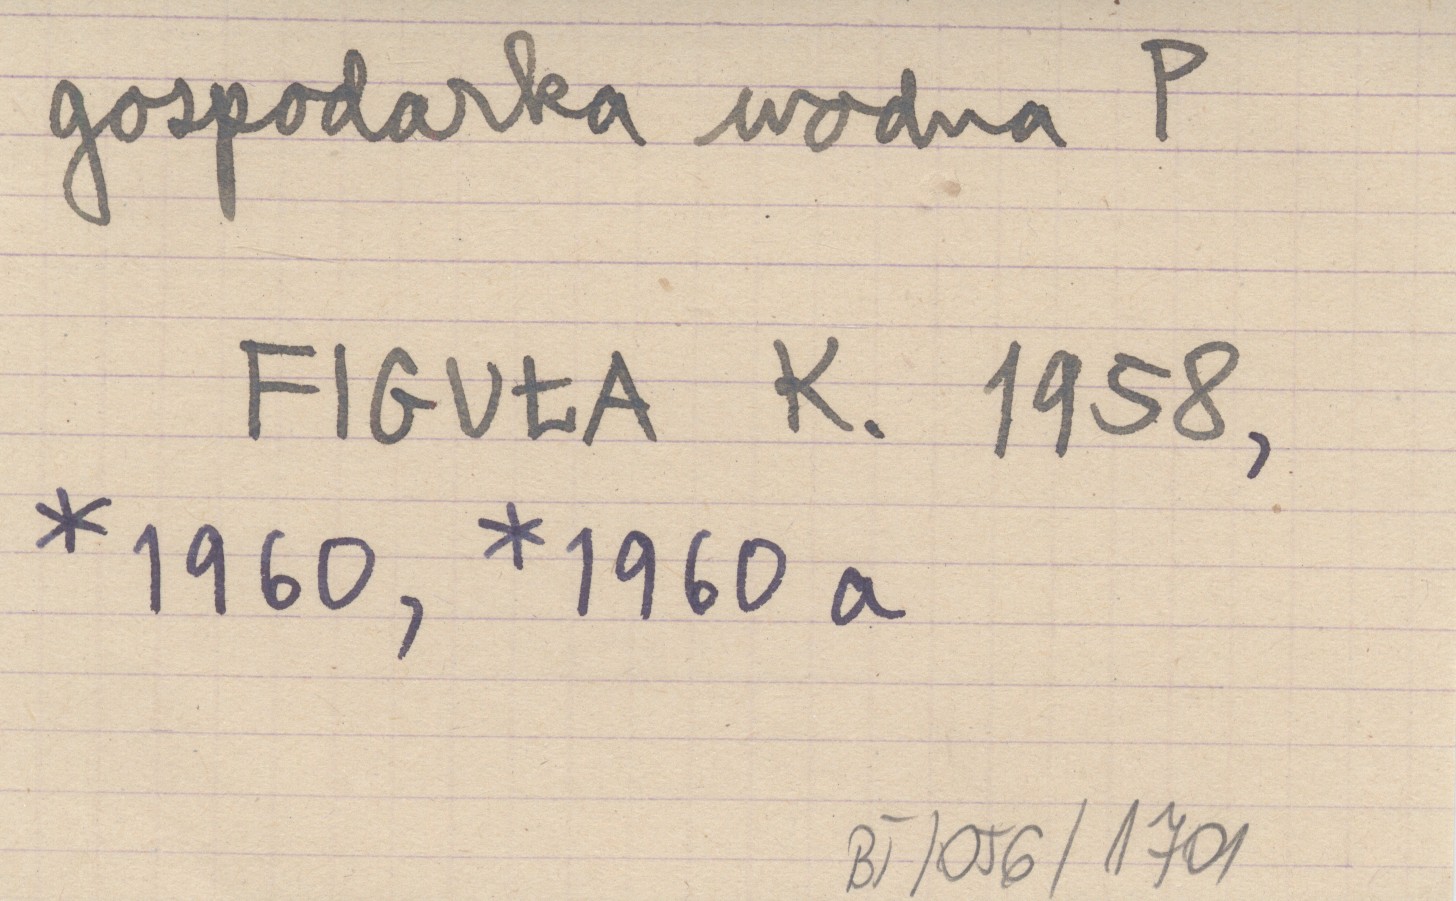 gospodarka wodna P
FIGUŁA K. 1958,
*1960, *1960 a
BI/056/1701